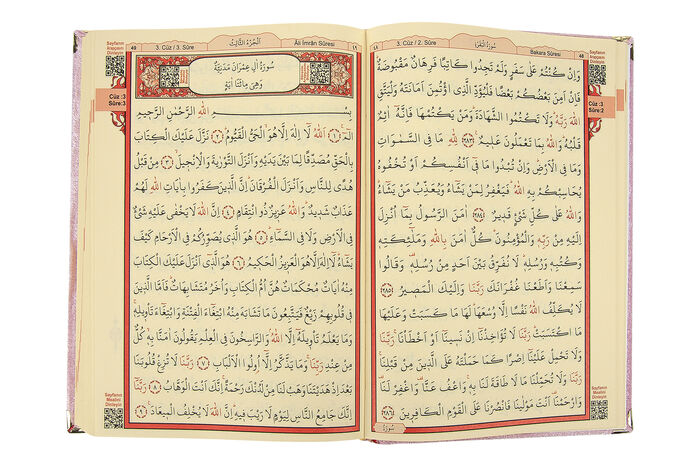 Sayfanın Arapçasını Dinleyin
48
Bakara Sûresi
سُورَةُ الْبَقَرَةِ
3. Cüz / 2. Sûre
٤٨
Cüz :3
Sûre:2
وَاِنْ كُنْتُمْ عَلٰى سَفَرٍ وَلَمْ تَجِدُوا كَاتِبًا فَرِهَانٌ مَقْبُوضَةٌ
فَاِنْ اَمِنَ بَعْضُكُمْ بَعْضًا فَلْيُؤَدِّ الَّذِي اؤْتُمِنَ اَمَانَتَهُ وَلْيَتَّقِ
اللّٰهَ رَبَّهُ وَلَا تَكْتُمُوا الشَّهَادَةَ وَمَنْ يَكْتُمْهَا فَاِنَّهُ اٰثِمٌ
قَلْبُهُ وَاللّٰهُ بِمَا تَعْمَلُونَ عَلِيمٌ ﴿٢٨٣﴾ لِلّٰهِ مَا فِي السَّمٰوَاتِ
وَمَا فِي الْاَرْضِ وَاِنْ تُبْدُوا مَا فِي اَنْفُسِكُمْ اَوْ تُخْفُوهُ
يُحَاسِبْكُمْ بِهِ اللّٰهُ فَيَغْفِرُ لِمَنْ يَشَاءُ وَيُعَذِّبُ مَنْ يَشَاءُ
وَاللّٰهُ عَلٰى كُلِّ شَيْءٍ قَدِيرٌ ﴿٢٨٤﴾ اٰمَنَ الرَّسُولُ بِمَا اُنْزِلَ
اِلَيْهِ مِنْ رَبِّهِ وَالْمُؤْمِنُونَ كُلٌّ اٰمَنَ بِاللّٰهِ وَمَلٰئِكَتِهِ
وَكُتُبِهِ وَرُسُلِهِ لَا نُفَرِّقُ بَيْنَ اَحَدٍ مِنْ رُسُلِهِ وَقَالُوا
سَمِعْنَا وَاَطَعْنَا غُفْرَانَكَ رَبَّنَا وَاِلَيْكَ الْمَصِيرُ ﴿٢٨٥﴾
لَا يُكَلِّفُ اللّٰهُ نَفْسًا اِلَّا وُسْعَهَا لَهَا مَا كَسَبَتْ وَعَلَيْهَا
مَا اكْتَسَبَتْ رَبَّنَا لَا تُؤَاخِذْنَا اِنْ نَسِينَا اَوْ اَخْطَأْنَا رَبَّنَا
وَلَا تَحْمِلْ عَلَيْنَا اِصْرًا كَمَا حَمَلْتَهُ عَلَى الَّذِينَ مِنْ قَبْلِنَا
رَبَّنَا وَلَا تُحَمِّلْنَا مَا لَا طَاقَةَ لَنَا بِهِ وَاعْفُ عَنَّا وَاغْفِرْ لَنَا
وَارْحَمْنَا اَنْتَ مَوْلٰينَا فَانْصُرْنَا عَلَى الْقَوْمِ الْكَافِرِينَ ﴿٢٨٦﴾
سُورَةُ
Sayfanın Mealini Dinleyin
٤٩
Âli İmrân Sûresi
اَلْجُزْءُ الثَّالِثُ
3. Cüz / 3. Sûre
49
Sayfanın Arapçasını Dinleyin
Cüz :3
Sûre:3
سُورَةُ اٰلِ عِمْرَانَ مَدَنِيَّةٌ
وَهِيَ مِائَتَا اٰيَةٍ
بِسْمِ اللّٰهِ الرَّحْمٰنِ الرَّحِيمِ
الٓمٓ ﴿١﴾ اَللّٰهُ لَا اِلٰهَ اِلَّا هُوَ الْحَيُّ الْقَيُّومُ ﴿٢﴾ نَزَّلَ عَلَيْكَ الْكِتَابَ
بِالْحَقِّ مُصَدِّقًا لِمَا بَيْنَ يَدَيْهِ وَاَنْزَلَ التَّوْرٰيةَ وَالْاِنْجِيلَ ﴿٣﴾ مِنْ قَبْلُ
هُدًى لِلنَّاسِ وَاَنْزَلَ الْفُرْقَانَ اِنَّ الَّذِينَ كَفَرُوا بِاٰيَاتِ اللّٰهِ لَهُمْ
عَذَابٌ شَدِيدٌ وَاللّٰهُ عَزِيزٌ ذُو انْتِقَامٍ ﴿٤﴾ اِنَّ اللّٰهَ لَا يَخْفٰى عَلَيْهِ شَيْءٌ
فِي الْاَرْضِ وَلَا فِي السَّمَاءِ ﴿٥﴾ هُوَ الَّذِي يُصَوِّرُكُمْ فِي الْاَرْحَامِ كَيْفَ
يَشَاءُ لَا اِلٰهَ اِلَّا هُوَ الْعَزِيزُ الْحَكِيمُ ﴿٦﴾ هُوَ الَّذِي اَنْزَلَ عَلَيْكَ الْكِتَابَ
مِنْهُ اٰيَاتٌ مُحْكَمَاتٌ هُنَّ اُمُّ الْكِتَابِ وَاُخَرُ مُتَشَابِهَاتٌ فَاَمَّا الَّذِينَ
فِي قُلُوبِهِمْ زَيْغٌ فَيَتَّبِعُونَ مَا تَشَابَهَ مِنْهُ ابْتِغَاءَ الْفِتْنَةِ وَابْتِغَاءَ تَأْوِيلِهِ
وَمَا يَعْلَمُ تَأْوِيلَهُ اِلَّا اللّٰهُ وَالرَّاسِخُونَ فِي الْعِلْمِ يَقُولُونَ اٰمَنَّا بِهِ كُلٌّ
مِنْ عِنْدِ رَبِّنَا وَمَا يَذَّكَّرُ اِلَّا اُولُوا الْاَلْبَابِ ﴿٧﴾ رَبَّنَا لَا تُزِغْ قُلُوبَنَا
بَعْدَ اِذْ هَدَيْتَنَا وَهَبْ لَنَا مِنْ لَدُنْكَ رَحْمَةً اِنَّكَ اَنْتَ الْوَهَّابُ ﴿٨﴾ رَبَّنَا
اِنَّكَ جَامِعُ النَّاسِ لِيَوْمٍ لَا رَيْبَ فِيهِ اِنَّ اللّٰهَ لَا يُخْلِفُ الْمِيعَادَ ﴿٩﴾
Sayfanın Mealini Dinleyin